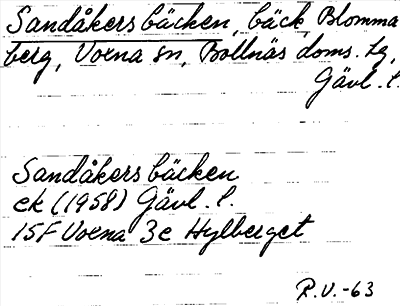 Sandåkersbäcken, bäck, Blomma
berg, Voxna sn, Bollnäs doms. lg,
Gävl. l.
Sandåkersbäcken
ek (1958) Gävl. l.
15F Voxna 3c Hylberget
R.V.-63